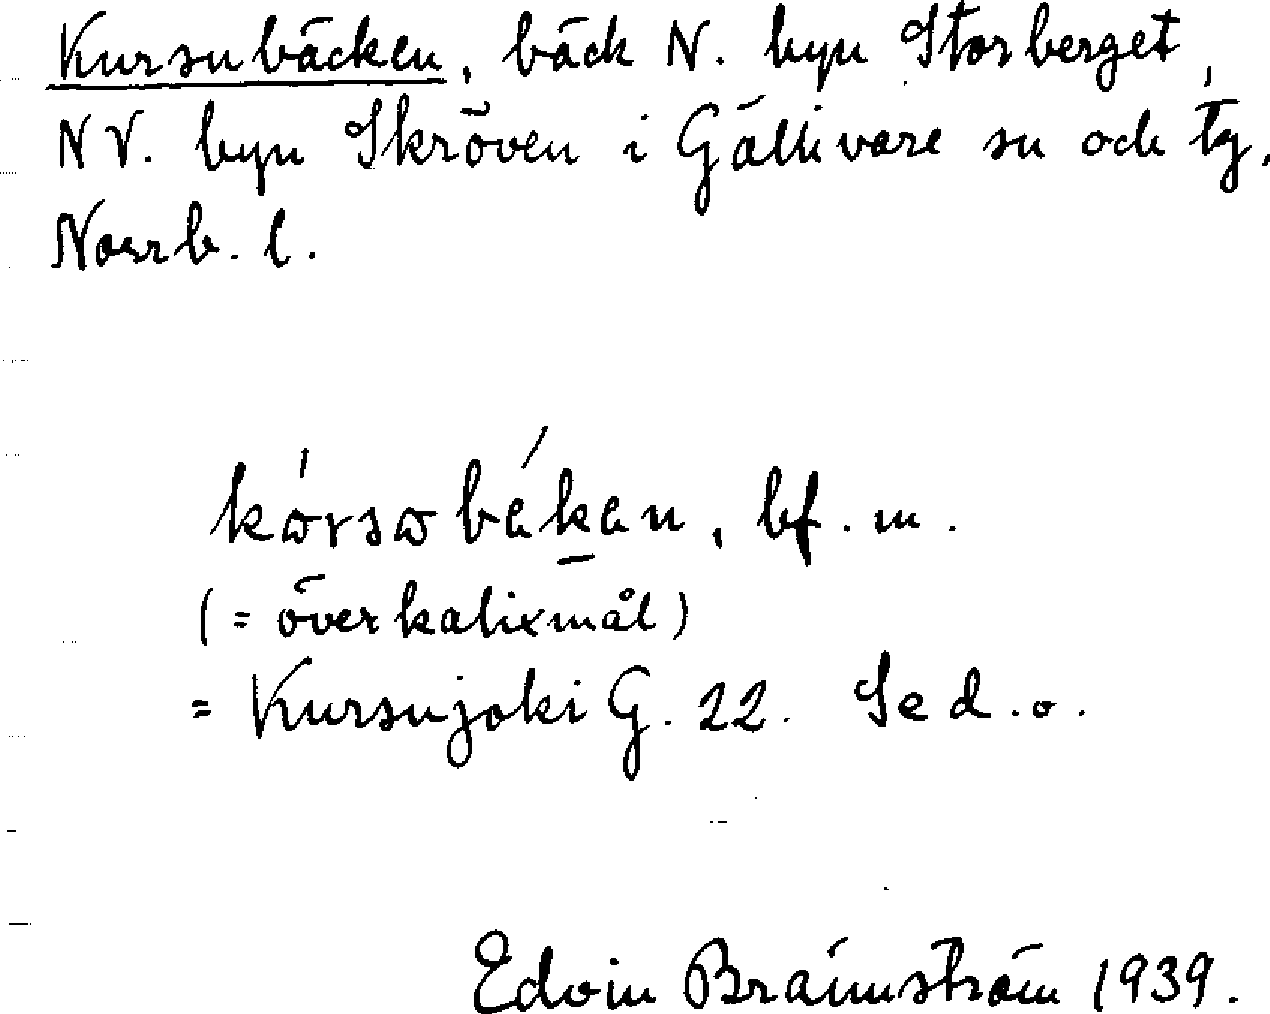 Kursubäcken, bäck N. byn Storberget,
NV. byn Skröven i Gällivare sn och tg,
Norrb. l.
kɷ́rsɷbékan, bf. m.
(= överkalixmål)
= Kursujoki G. 22. Se d.o.
Edvin Brännström 1939.